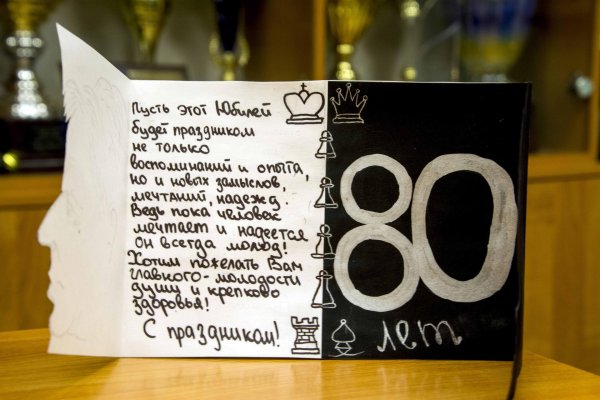 Пусть этот Юбилей
будет праздником
не только
воспоминаний и опыта,
но и новых замыслов,
мечтаний, надежд.
Ведь пока человек
мечтает и надеется
он всегда молод!
Хотим пожелать Вам
главного - молодости
душу и крепково
здоровья!
С праздником!
80
лет